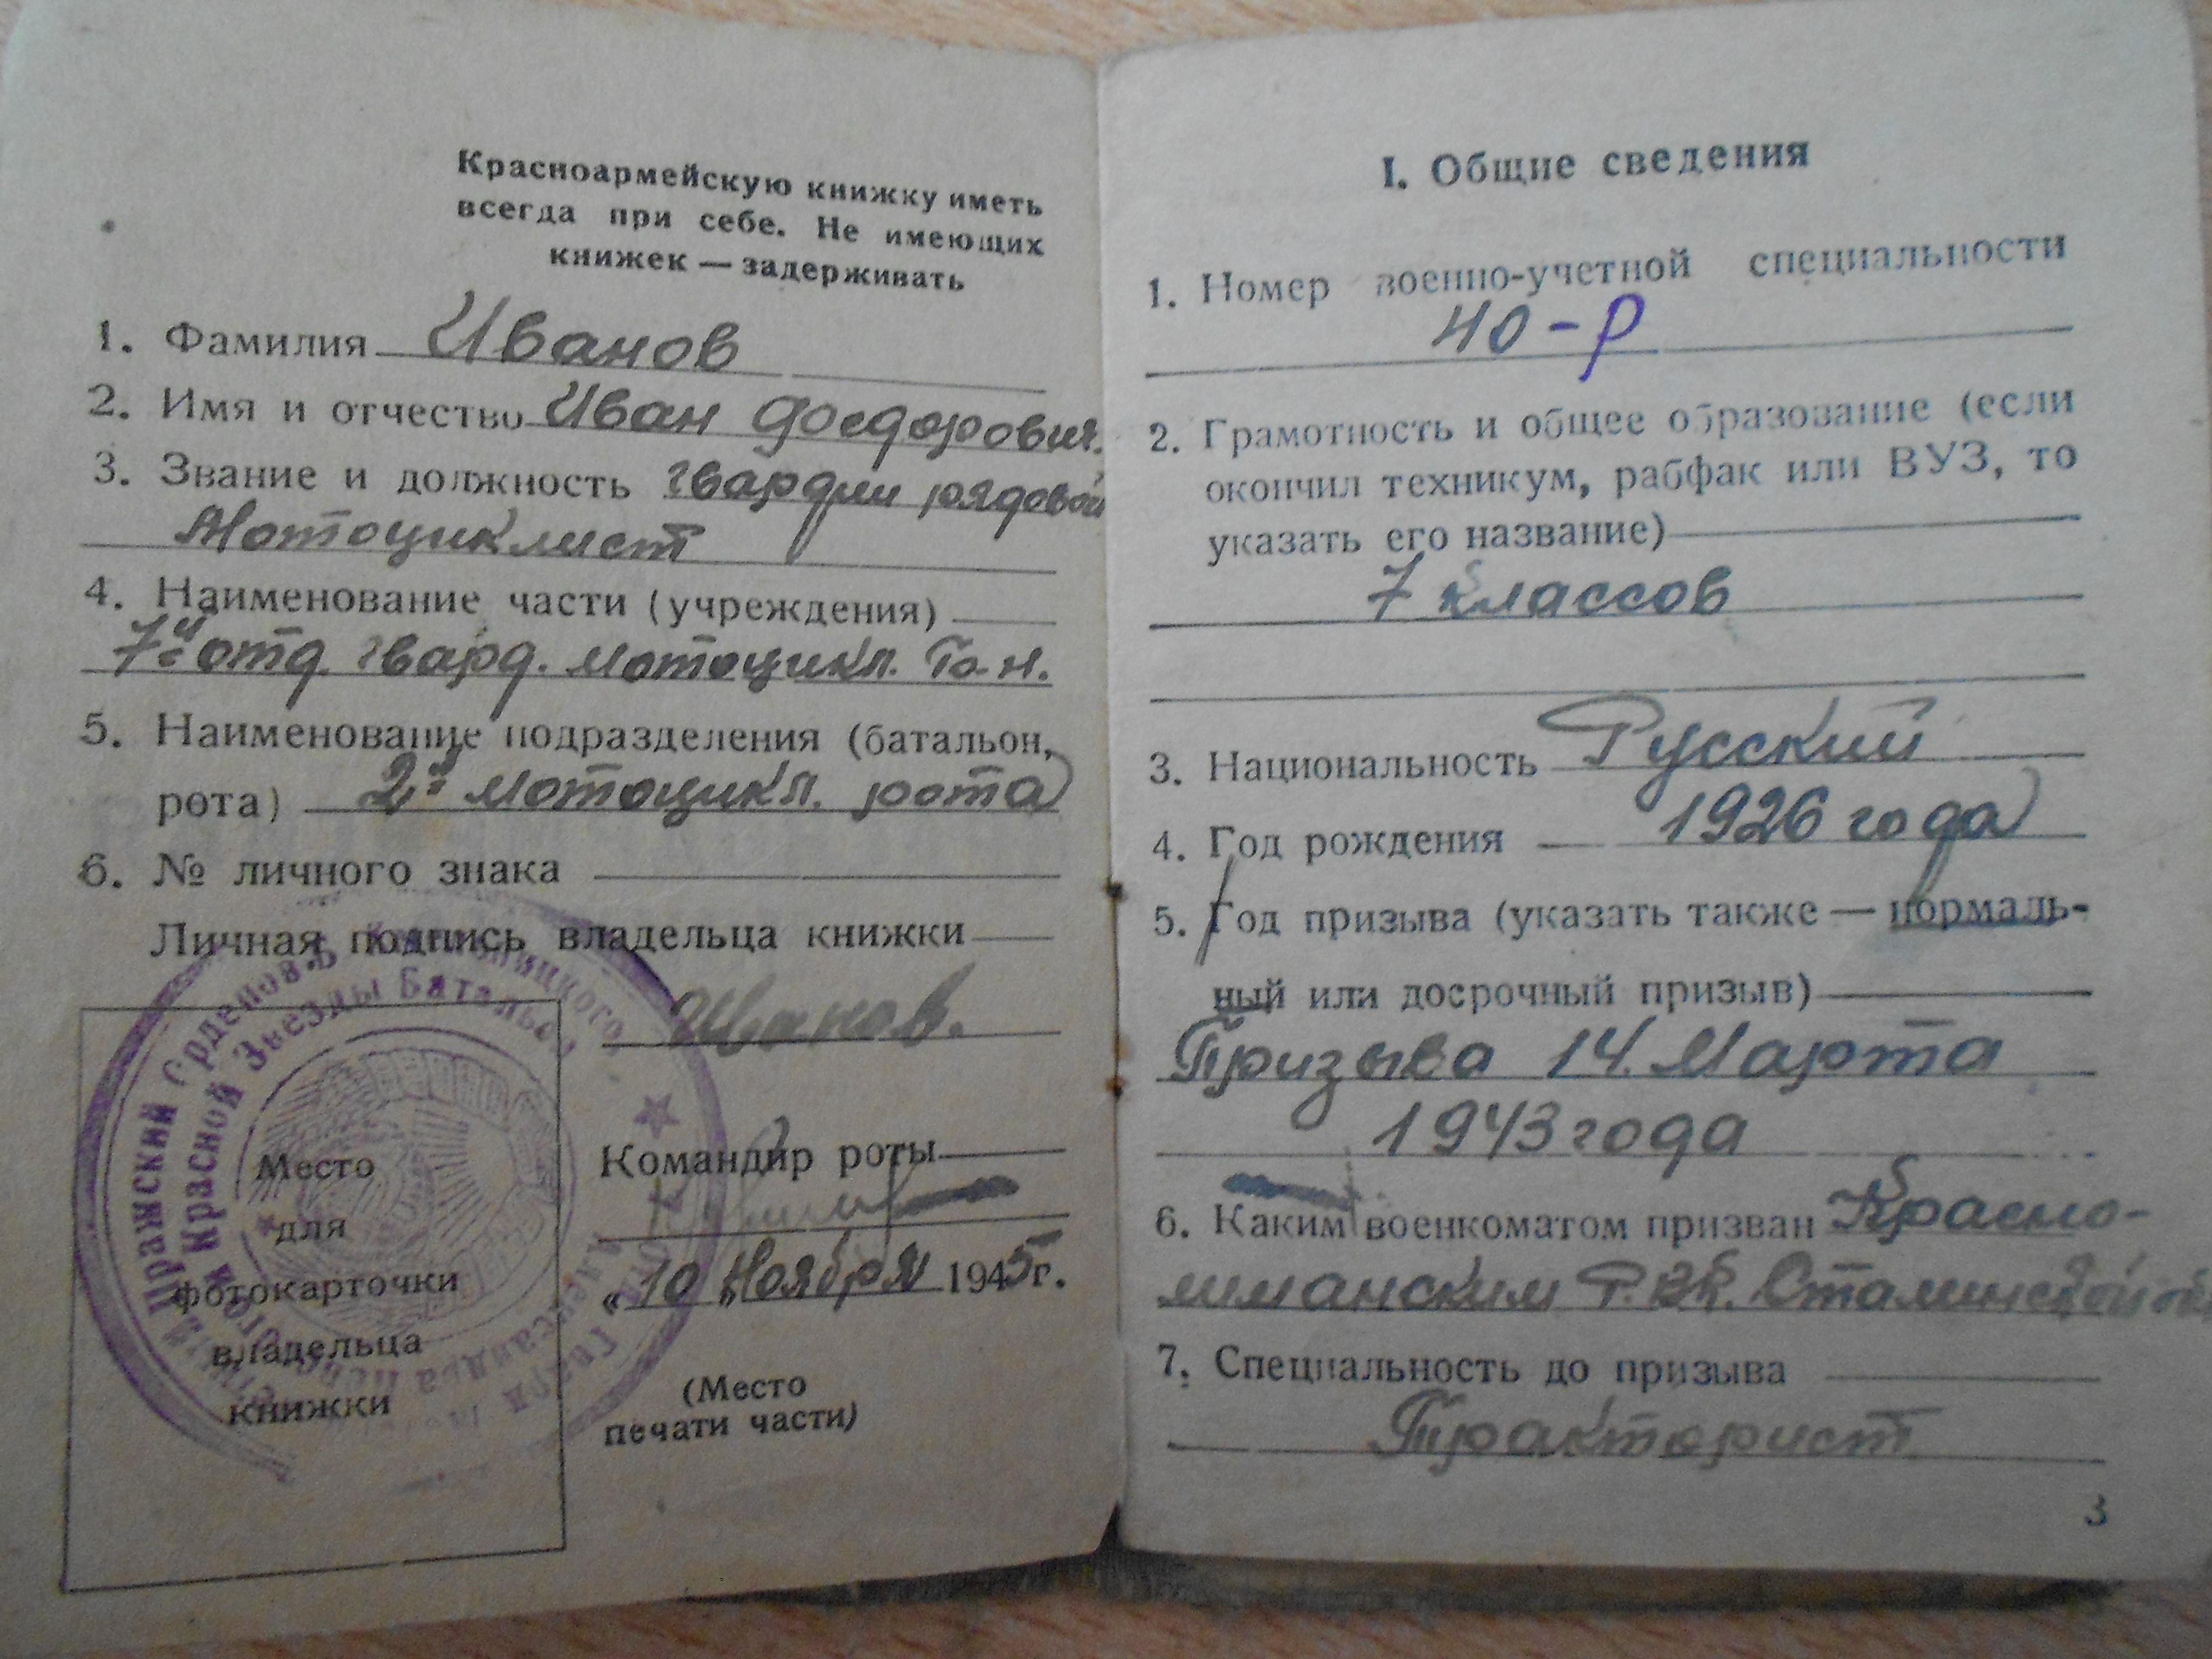 Красноармейскую книжку иметь
всегда при себе. Не имеющих
книжек — задерживать
1. Фамилия Иванов
2. Имя и отчество Иван Фоедорович.
3. Звание и должность гвардии рядовой
Мотоциклист
4. Наименование части (учреждения)
7й отд. гвард. мотоцикл.
5. Наименование подразделения (батальон,
рота) 2я мотоцикл. рота
6. № личного знака
Личная подпись владельца книжки
Иванов.
Место
для
фотокарточки
владельца
книжки
Командир роты
«10» Ноября 1945г.
(Место
печати части)
Пражский Орденов Б.
Красной Звезды Батальон
I. Общие сведения
1. Номер военно-учетной специальности
40-р
2. Грамотность и общее образование (если
окончил техникум, рабфак или ВУЗ, то
указать его название)
7 классов
3. Национальность Русский
4. Год рождения 1926 года
5. Год призыва (указать также — нормаль-
ный или досрочный призыв)
Призыва 14. Марта
1943 года
6. Каким военкоматом призван Красно-
лиманским Р.В.К. Сталинской
7. Специальность до призыва
Тракторист
3